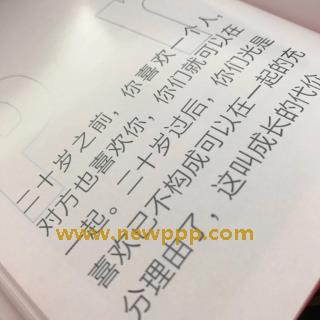 二十岁之前，你喜欢一个人，
对方也喜欢你，你们就可以在
一起。二十岁过后，你们光是
喜欢已不构成可以在一起的充
分理由了，这叫成长的代价
www.newppp.com